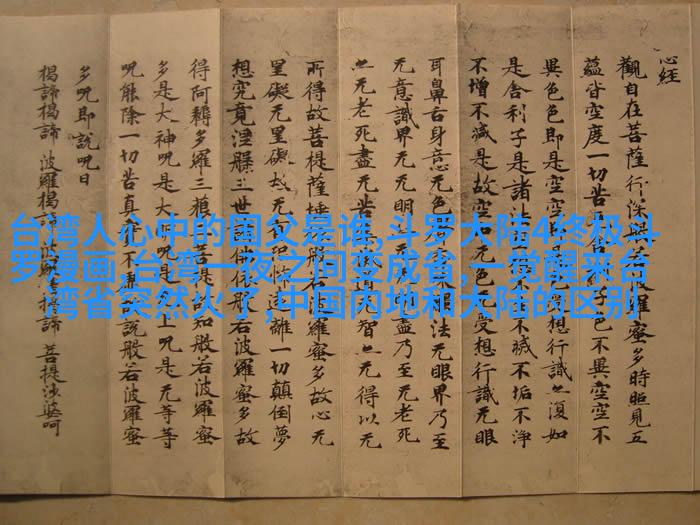 台湾人心中的国父是谁,斗罗大陆4终极斗
罗漫画,台湾一夜之间变成省,一觉醒来台
湾省突然火了,中国内地和大陆的区别
心经
觀自在菩薩行深般若波羅蜜多時照見五
蘊皆空度一切苦厄舍利子色不異空空不
異色色即是空空即是色受想行識亦復如
是舍利子是諸法空相不生不滅不垢不淨
不增不減是故空中无色无受想行識无眼
耳鼻舌身意无色聲香味觸法无眼界乃至
无意識界无无明亦无无明盡乃至无老死
亦无老死盡无苦集滅道无智亦无得以无
所得故菩提薩埵依般若波羅蜜多故心无
罣礙无罣礙故无有恐怖遠離一切顛倒夢
想究竟涅槃三世諸佛依般若波羅蜜多故
得阿耨多羅三藐三菩提故知般若波羅蜜
多是大神呪是大明呪是无上呪是无等等
呪能除一切苦真實不虛故說般若波羅蜜
多呪即說呪曰
揭諦揭諦 波羅揭諦 波羅僧揭諦 菩提薩婆呵